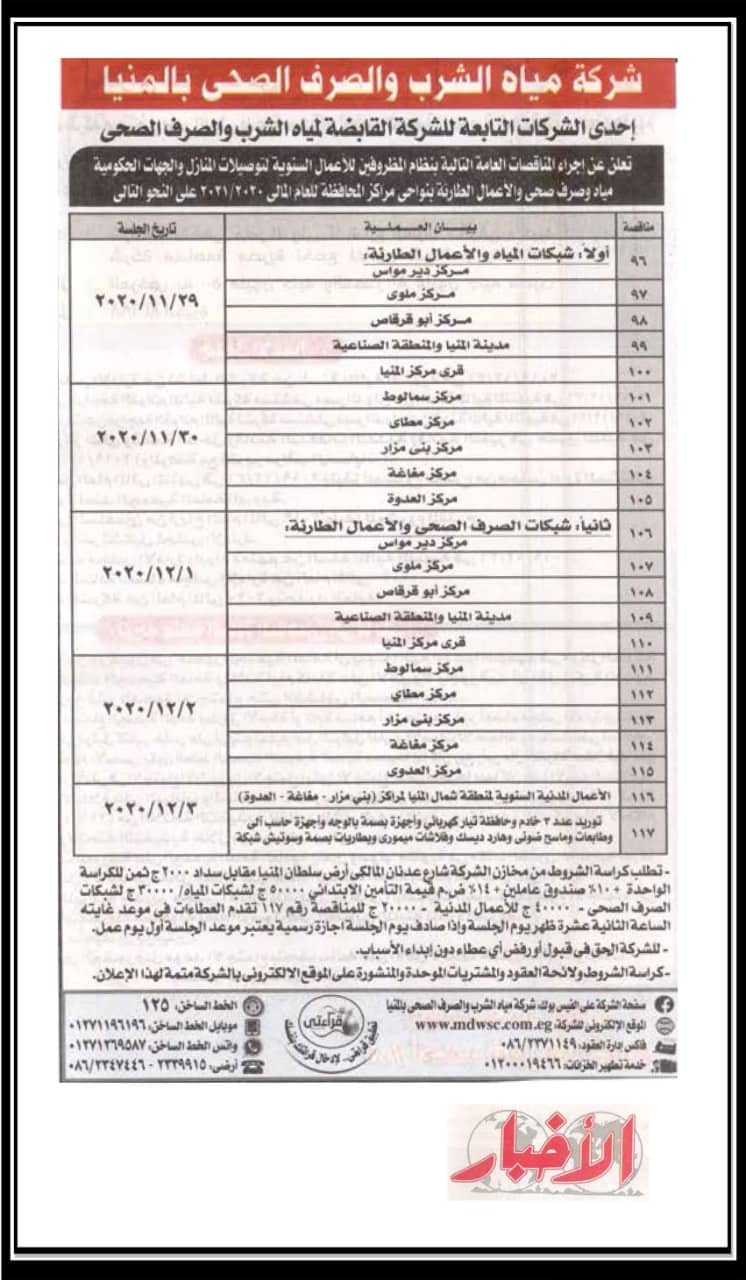 شركة مياه الشرب والصرف الصحى بالمنيا
إحدى الشركات التابعة للشركة القابضة لمياه الشرب والصرف الصحى
تعلن عن إجراء المناقصات العامة التالية بنظام المظروفين للأعمال السنوية لتوصيلات المنازل والجهات الحكومية
مياه وصرف صحى والأعمال الطارئة بنواحى مراكز المحافظة للعام المالى ٢٠٢١/٢٠٢٠ على النحو التالى
مناقصة بيـــان العـــملية تاريخ الجلسة
٩٦ أولاً: شبكات المياه والأعمال الطارئة:
مـركز دير مواس
٩٧ مـركز ملوى ٢٠٢٠/١١/٢٩
٩٨ مـركز أبو قرقاص
٩٩ مدينة المنيا والمنطقة الصناعية
١٠٠ قرى مركز المنيا
١٠١ مركز سمالوط
١٠٢ مركز مطاى
١٠٣ مركز بنى مزار ٢٠٢٠/١١/٣٠
١٠٤ مركز مغاغة
١٠٥ مركز العدوة
١٠٦ ثانياً: شبكات الصرف الصحى والأعمال الطارئة:
مركز دير مواس
١٠٧ مركز ملوى ٢٠٢٠/١٢/١
١٠٨ مركز أبو قرقاص
١٠٩ مدينة المنيا والمنطقة الصناعية
١١٠ قرى مركز المنيا
١١١ مركز سمالوط
١١٢ مركز مطاي
١١٣ مركز بنى مزار ٢٠٢٠/١٢/٢
١١٤ مركز مغاغة
١١٥ مركز العدوى
١١٦ الأعمال المدنية السنوية لمنطقة شمال المنيا لمراكز (بني مزار - مغاغة - العدوة)
١١٧ توريد عدد ٢ خادم وحافظة تيار كهربائي وأجهزة بصمة بالوجه وأجهزة حاسب آلى ٢٠٢٠/١٢/٣
وطابعات وماسح ضوئى وهارد ديسك وفلاشات ميمورى وبطاريات بصمة وسوتيش شبكة
- تطلب كراسة الشروط من مخازن الشركة شارع عدنان المالكى أرض سلطان المنيا مقابل سداد ٢٠٠٠ ج ثمن للكراسة
الواحدة + ١٠٪ صندوق عاملين + ١٤٪ ض.م قيمة التأمين الابتدائى ٥٠٠٠٠ ج لشبكات المياه/ ٣٠٠٠٠ ج لشبكات
الصرف الصحى - ٤٠٠٠٠ ج للأعمال المدنية - ٢٠٠٠٠ ج للمناقصة رقم ١١٧ تقدم العطاءات فى موعد غايته
الساعة الثانية عشرة ظهر يوم الجلسة وإذا صادف يوم الجلسة اجازة رسمية يعتبر موعد الجلسة أول يوم عمل.
- للشركة الحق فى قبول أو رفض أي عطاء دون إبداء الأسباب.
- كراسة الشروط ولائحة العقود والمشتريات الموحدة والمنشورة على الموقع الالكترونى بالشركة متمة لهذا الإعلان.
صفحة الشركة على الفيس بوك: شركة مياه الشرب والصرف الصحى بالمنيا
الموقع الإلكترونى للشركة: www.mdwsc.com.eg
فاكس إدارة العقود: ٠٨٦/٢٣٧١١٤٩
خدمة تطهير الخزانات: ٠١٢٠٠٠١٩٤٦٦
قراءتى
الخط الساخن: ١٢٥
موبايل الخط الساخن: ٠١٢٧١١٩٦١٩٦
واتس الخط الساخن: ٠١٢٧١٢٦٩٥٨٧
أرضى: ٢٣٣٩٩١٥ - ٠٨٦/٢٣٤٧٤٤٦
الأخبار